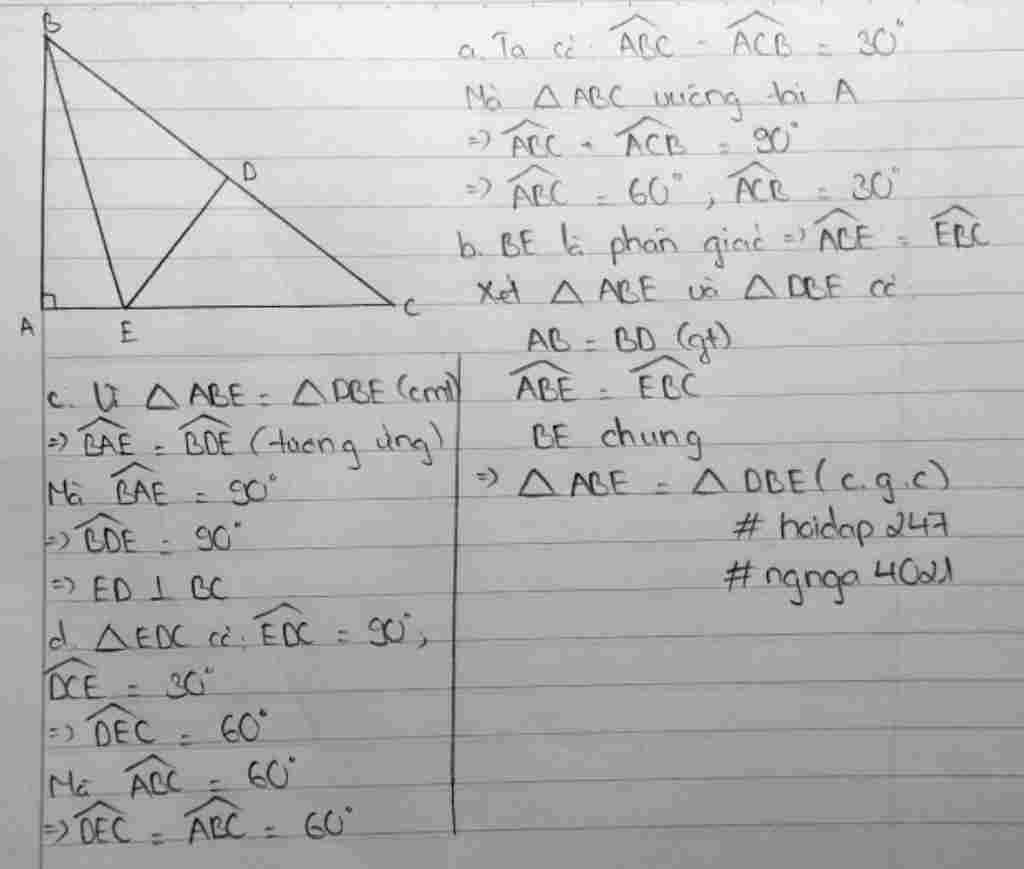 B
D
A
E
C
a. Ta có: ABC - ACB = 30°
Mà △ABC vuông tại A
=> ABC + ACB = 90°
=> ABC = 60°, ACB = 30°
b. BE là phân giác => ABE = EBC
Xét △ABE và △DBE có:
AB = BD (gt)
ABE = EBC
BE chung
=> △ABE = △DBE (c.g.c)
# hoidap 247
# ngnga 4021
c. Vì △ABE = △DBE (cmt)
=> BAE = BDE (tương ứng)
Mà BAE = 90°
=> BDE = 90°
=> ED ⊥ BC
d. △EDC có: EDC = 90°,
DCE = 30°
=> DEC = 60°
Mà ABC = 60°
=> DEC = ABC = 60°